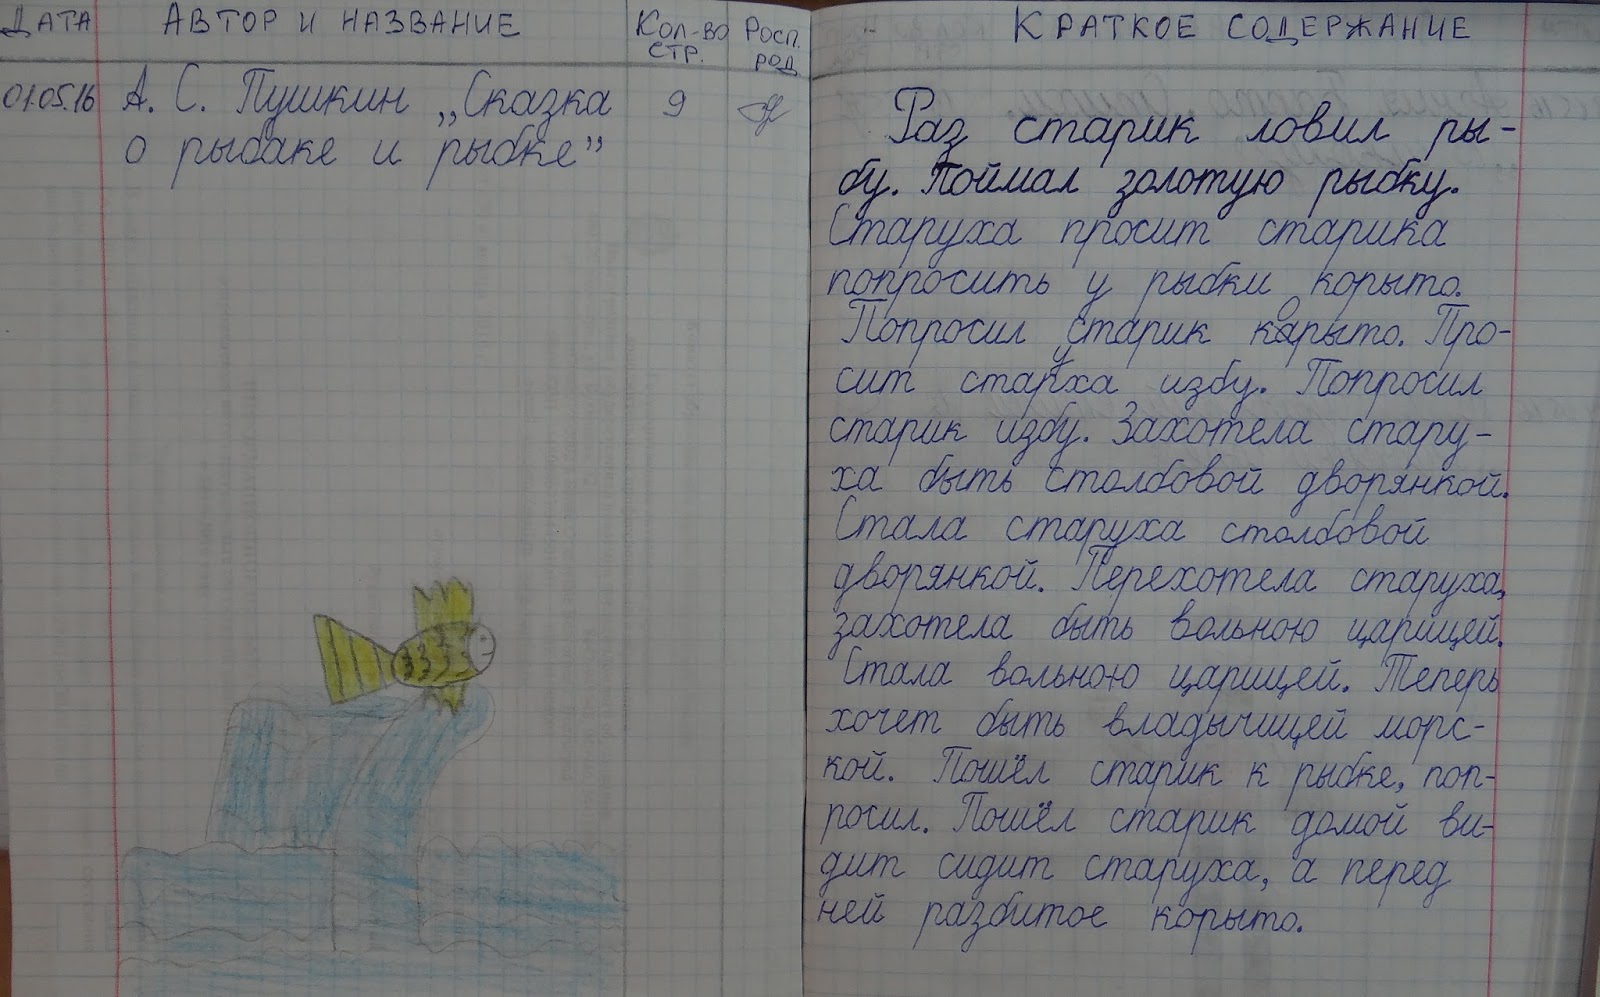 ДАТА АВТОР И НАЗВАНИЕ КОЛ-ВО СТР. РОСП. РОД.
01.05.16 А. С. Пушкин „Сказка 9
о рыбаке и рыбке”
КРАТКОЕ СОДЕРЖАНИЕ
Раз старик ловил ры-
бу. Поймал золотую рыбку.
Старуха просит старика
попросить у рыбки корыто.
Попросил старик корыто. Про-
сит старуха избу. Попросил
старик избу. Захотела стару-
ха быть столбовой дворянкой.
Стала старуха столбовой
дворянкой. Перехотела старуха,
захотела быть вольною царицей.
Стала вольною царицей. Теперь
хочет быть владычицей морс-
кой. Пошёл старик к рыбке, поп-
росил. Пошёл старик домой ви-
дит сидит старуха, а перед
ней разбитое корыто.